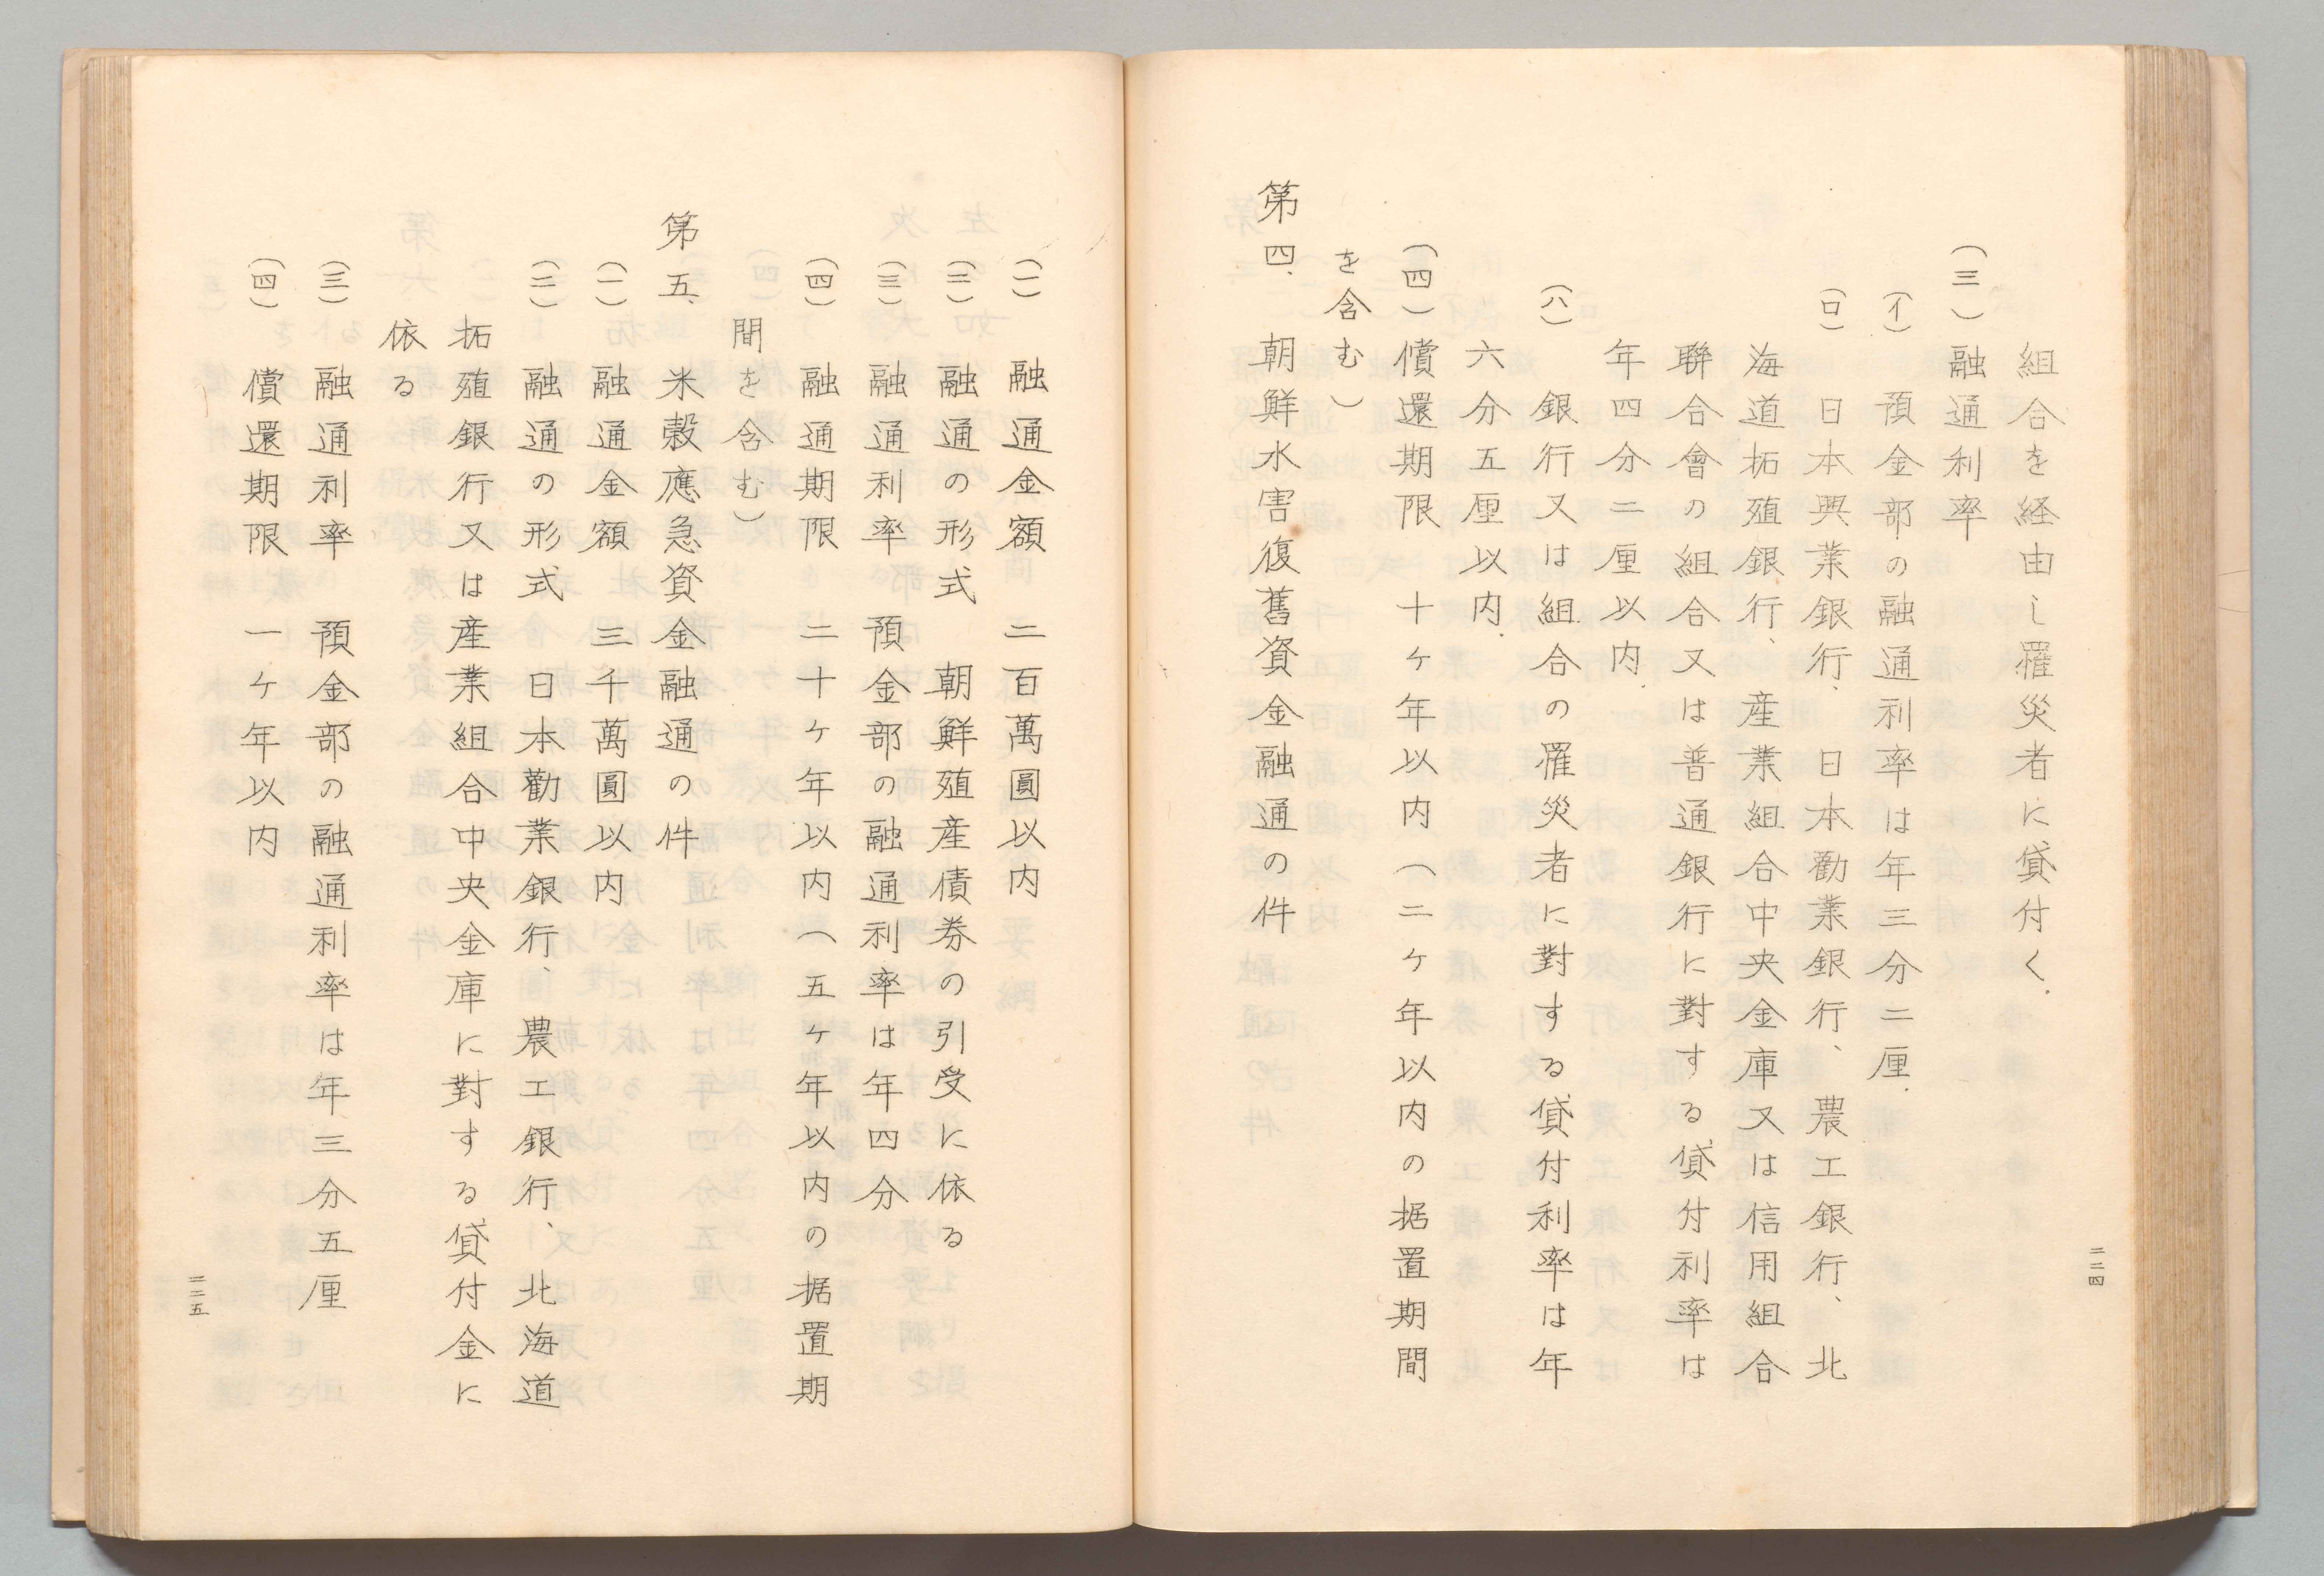 組合を経由し罹災者に貸付く.
(三)融通利率
(イ) 預金部の融通利率は年三分二厘.
(ロ) 日本興業銀行、日本勧業銀行、農工銀行、北
海道拓殖銀行、産業組合中央金庫又は信用組合
聯合會の組合又は普通銀行に對する貸付利率は
年四分二厘以内.
(ハ) 銀行又は組合の罹災者に對する貸付利率は年
六分五厘以内.
(四)償還期限 十ヶ年以内(二ヶ年以内の据置期間
を含む)
第四、朝鮮水害復舊資金融通の件
二二四
(一) 融通金額 二百萬圓以内
(二) 融通の形式 朝鮮殖産債券の引受に依る
(三) 融通利率 預金部の融通利率は年四分
(四) 融通期限 二十ヶ年以内(五ヶ年以内の据置期
間を含む)
第五、米穀應急資金融通の件
(一) 融通金額 三千萬圓以内
(二) 融通の形式 日本勸業銀行、農工銀行、北海道
拓殖銀行又は産業組合中央金庫に對する貸付金に
依る
(三) 融通利率 預金部の融通利率は年三分五厘
(四) 償還期限 一ヶ年以内
二二五